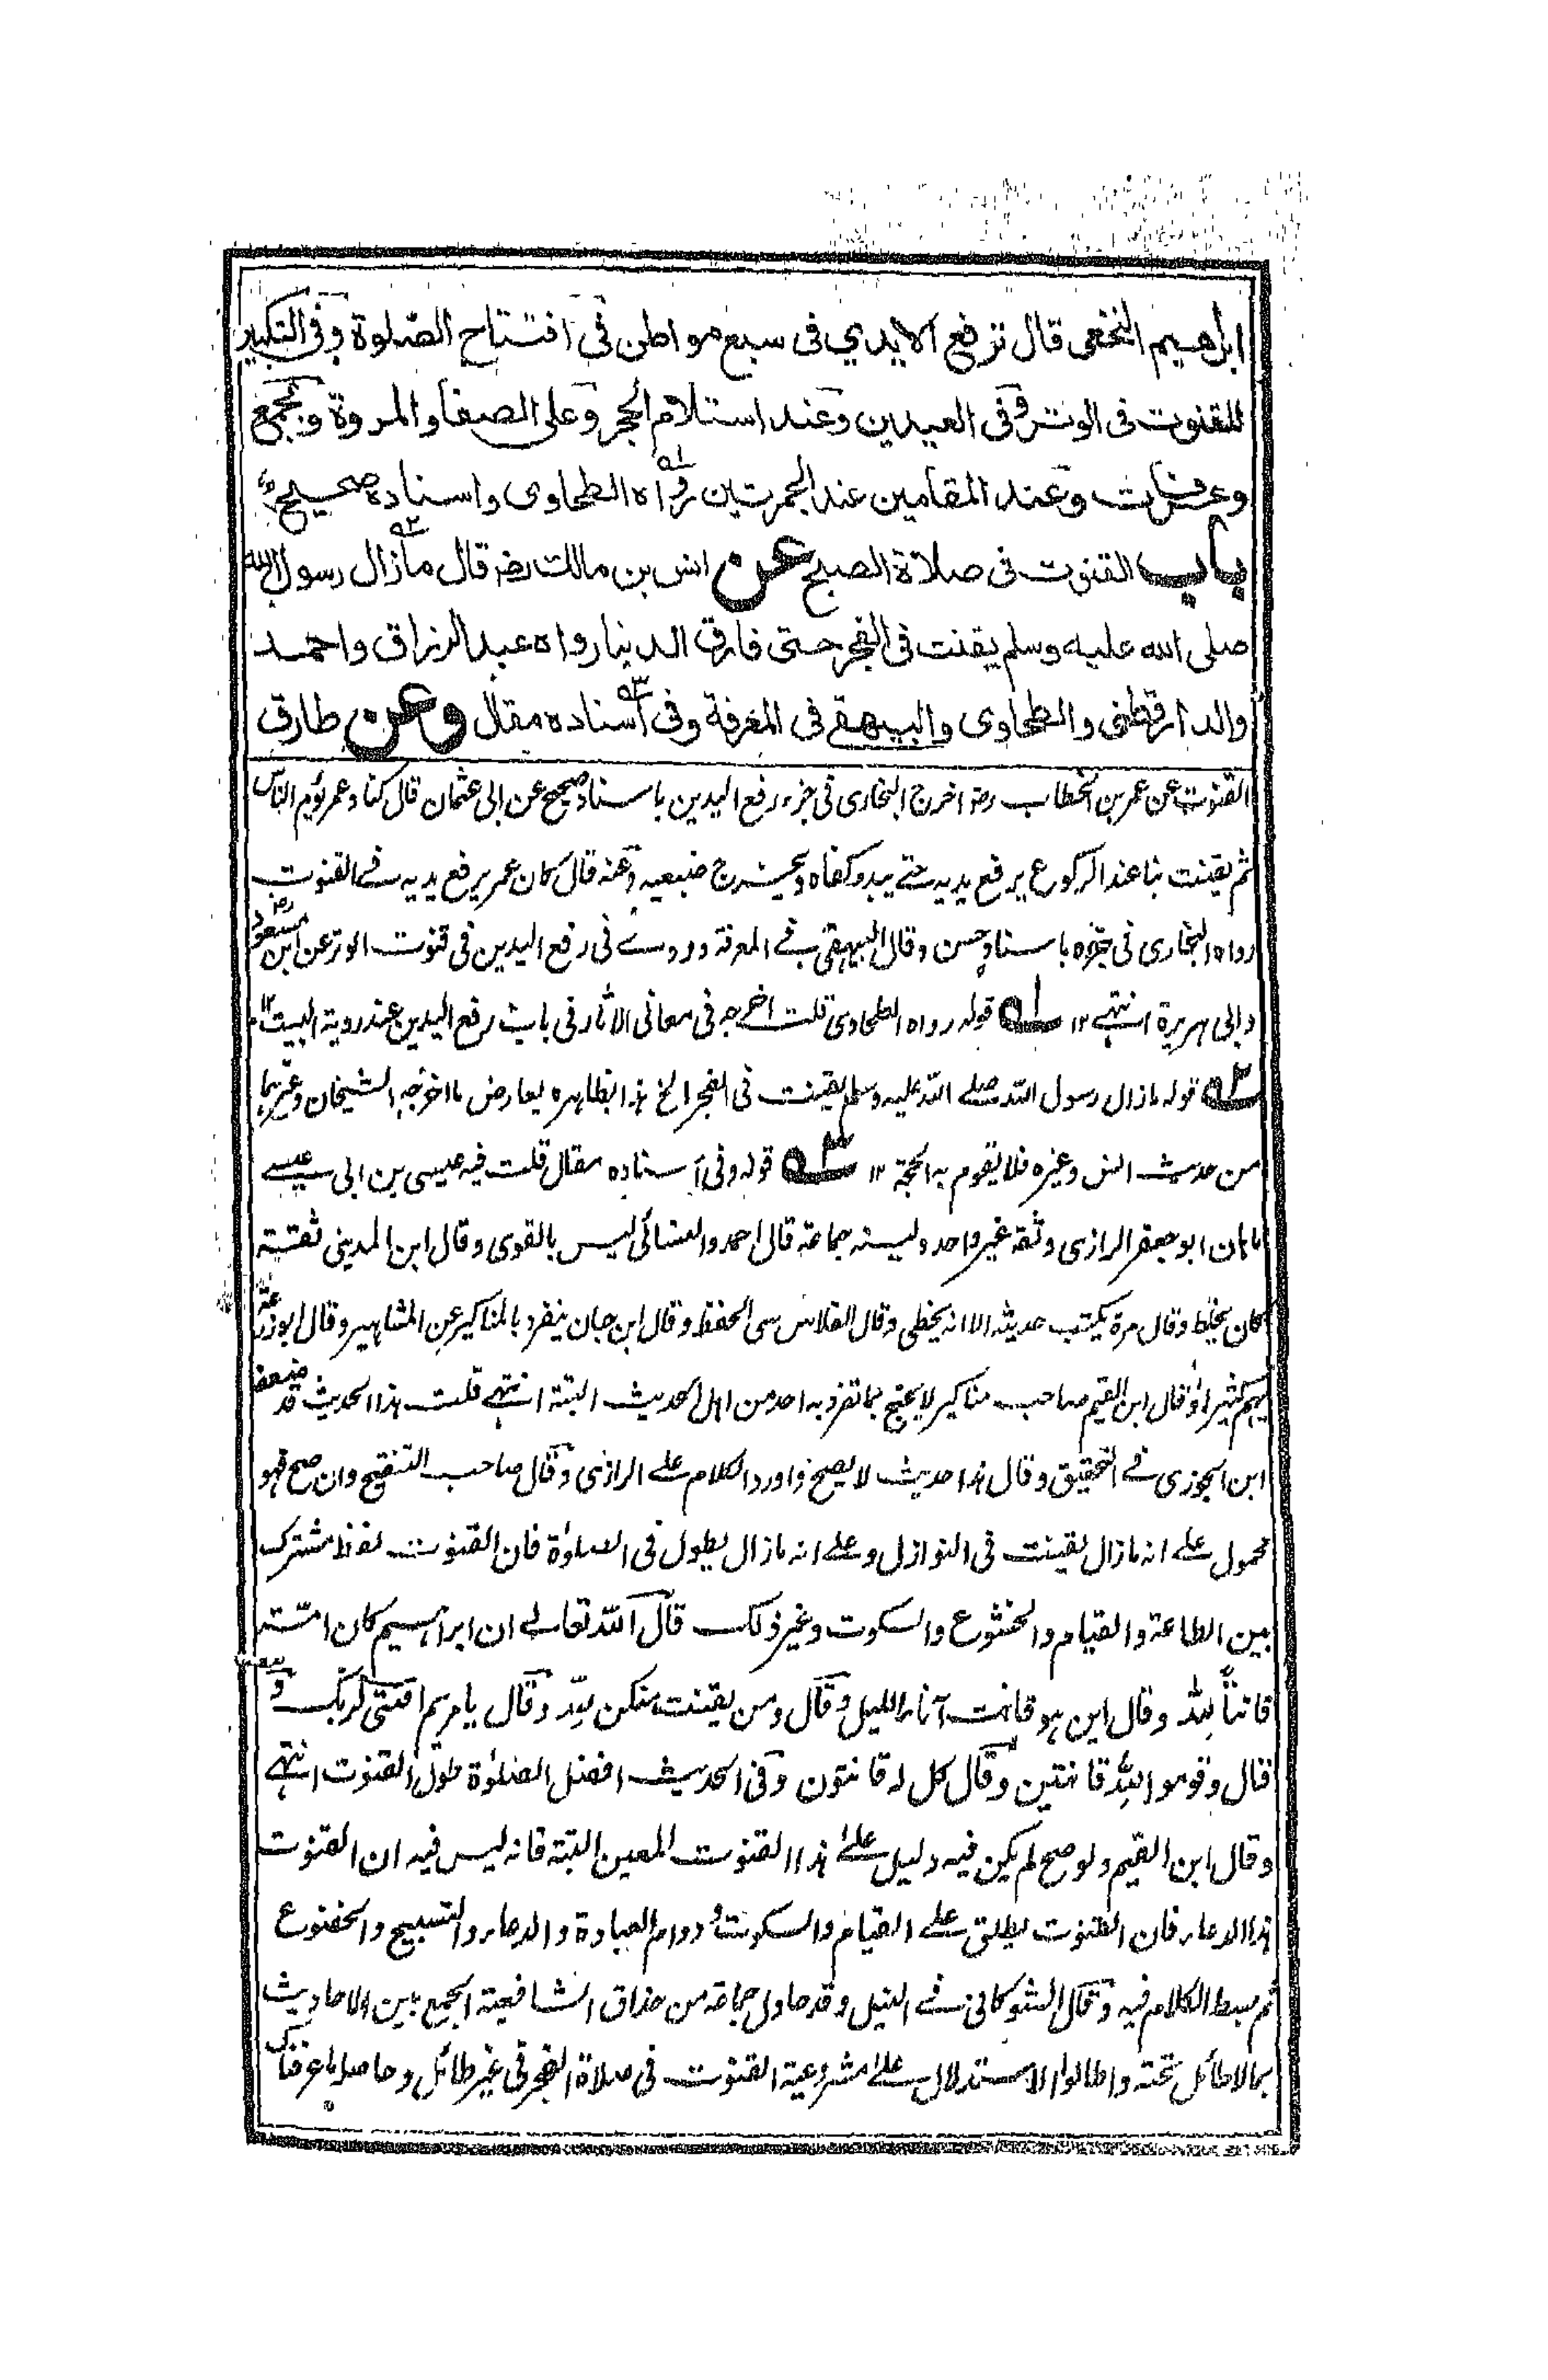 ابراهيم النخعى قال ترفع الايدي فى سبع مواطن فى افتتاح الصّلوة وفى التكبير
للقنوت فى الوتر وفى العيدين وعند استلام الحجر وعلى الصفا والمروة وبجمع
وعرفات وعند المقامين عند الجمرتين رواه الطحاوى واسناده صحيح
باب القنوت فى صلاة الصبح عن انس بن مالك رضـ قال مازال رسول الله
صلى الله عليه وسلم يقنت فى الفجر حتى فارق الدنيا رواه عبد الرزاق واحمد
والدارقطنى والطحاوى والبيهقے فى المعرفة وفى اسناده مقال وعن طارق
القنوت عن عمر بن الخطاب رضـ اخرج البخارى فى جزء رفع اليدين باسناد صحيح عن ابى عثمان قال كنا وعمر يؤم الناس
ثم يقنت بنا عند الركوع يرفع يديه حتے يبدو كفاه ويخرج ضبعيه وعنه قال كان عمر يرفع يديه فے القنوت
رواه البخارى فى جزءه باسناد حسن وقال البيهقى فے المعرفة وروے فى رفع اليدين فى قنوت الوتر عن ابن مسعود رضـ
وابى هريرة انتہے ١٢ ؎١ قوله رواه الطحاوى قلت اخرجه فى معانى الاثار فى باب رفع اليدين عند روية البيت ١٢
؎٢ قوله مازال رسول الله صلے الله عليه وسلم يقنت فى الفجر الخ هذا بظاهره يعارض ما اخرجه الشيخان وغيرهما
من حديث انس وغيره فلا يقوم به الحجة ١٢ ؎٣ قوله وفى اسناده مقال قلت فيه عيسى بن ابى عيسے
ماهان ابو جعفر الرازى وثقه غير واحد ولينه جماعة قال احمد والنسائى ليس بالقوى وقال ابن المدينى ثقة
كان يخلط وقال مرة يكتب حديثه الا انه يخطى وقال الفلاس سى الحفظ وقال ابن حبان ينفرد بالمناكير عن المشاهير وقال ابو زرعة
يهم كثيرا وقال ابن القيم صاحب مناكير لا يحتج بما تفرد به احد من اهل الحديث البتة انتہے قلت هذا الحديث قد ضعفه
ابن الجوزى فے التحقيق وقال هذا حديث لا يصح واورد الكلام علے الرازى وقال صاحب التنقيح وان صح فهو
محمول علے انه مازال يقنت فى النوازل وعلے انه مازال يطول فى الصلوٰة فان القنوت لفظ مشترك
بين الطاعة والقيام والخشوع والسكوت وغير ذلك قال الله تعالے ان ابراهيم كان امّة
قانتاً لله وقال امن هو قانت آناء الليل وقال ومن يقنت منكن لله وقال يا مريم اقنتى لربك و
قال وقوموا لله قانتين وقال كل له قانتون وفى الحديث افضل الصلوٰة طول القنوت انتہے
وقال ابن القيم ولو صح لم يكن فيه دليل علے هذا القنوت المعين البتة فانه ليس فيه ان القنوت
هذا الدعاء فان القنوت يطلق علے القيام والسكوت ودوام العبادة والدعاء والتسبيح والخشوع
ثم بسط الكلام فيه وقال الشوكانى فے النيل وقد حاول جماعة من حذاق الشافعية الجمع بين الاحاديث
بما لا طائل تحته واطالوا الاستدلال علے مشروعية القنوت فى صلاة الفجر فى غير طائل وحاصله ما عرفناك